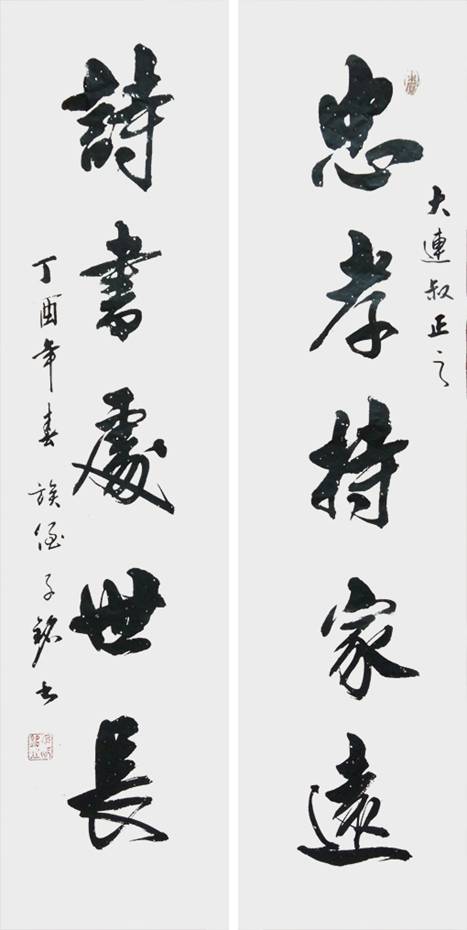 大連叔正之
忠孝持家遠
詩書處世長
丁酉年春 族侄子銘书